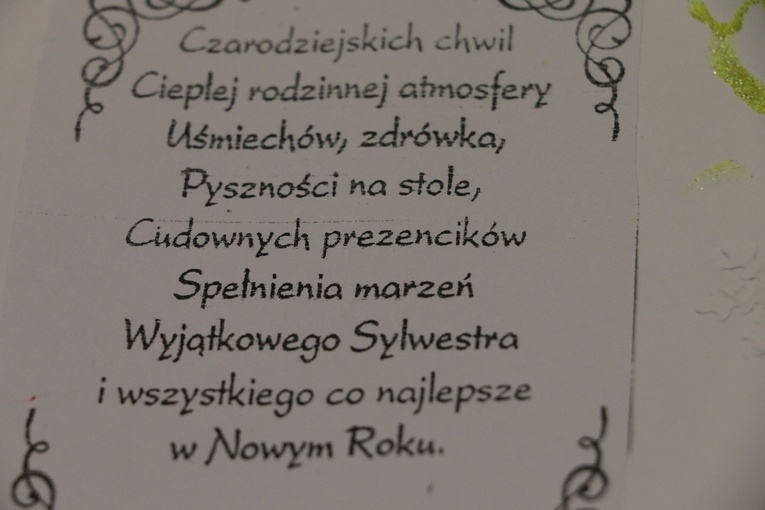 Czarodziejskich chwil
Ciepłej rodzinnej atmosfery
Uśmiechów, zdrówka,
Pyszności na stole,
Cudownych prezencików
Spełnienia marzeń
Wyjątkowego Sylwestra
i wszystkiego co najlepsze
w Nowym Roku.